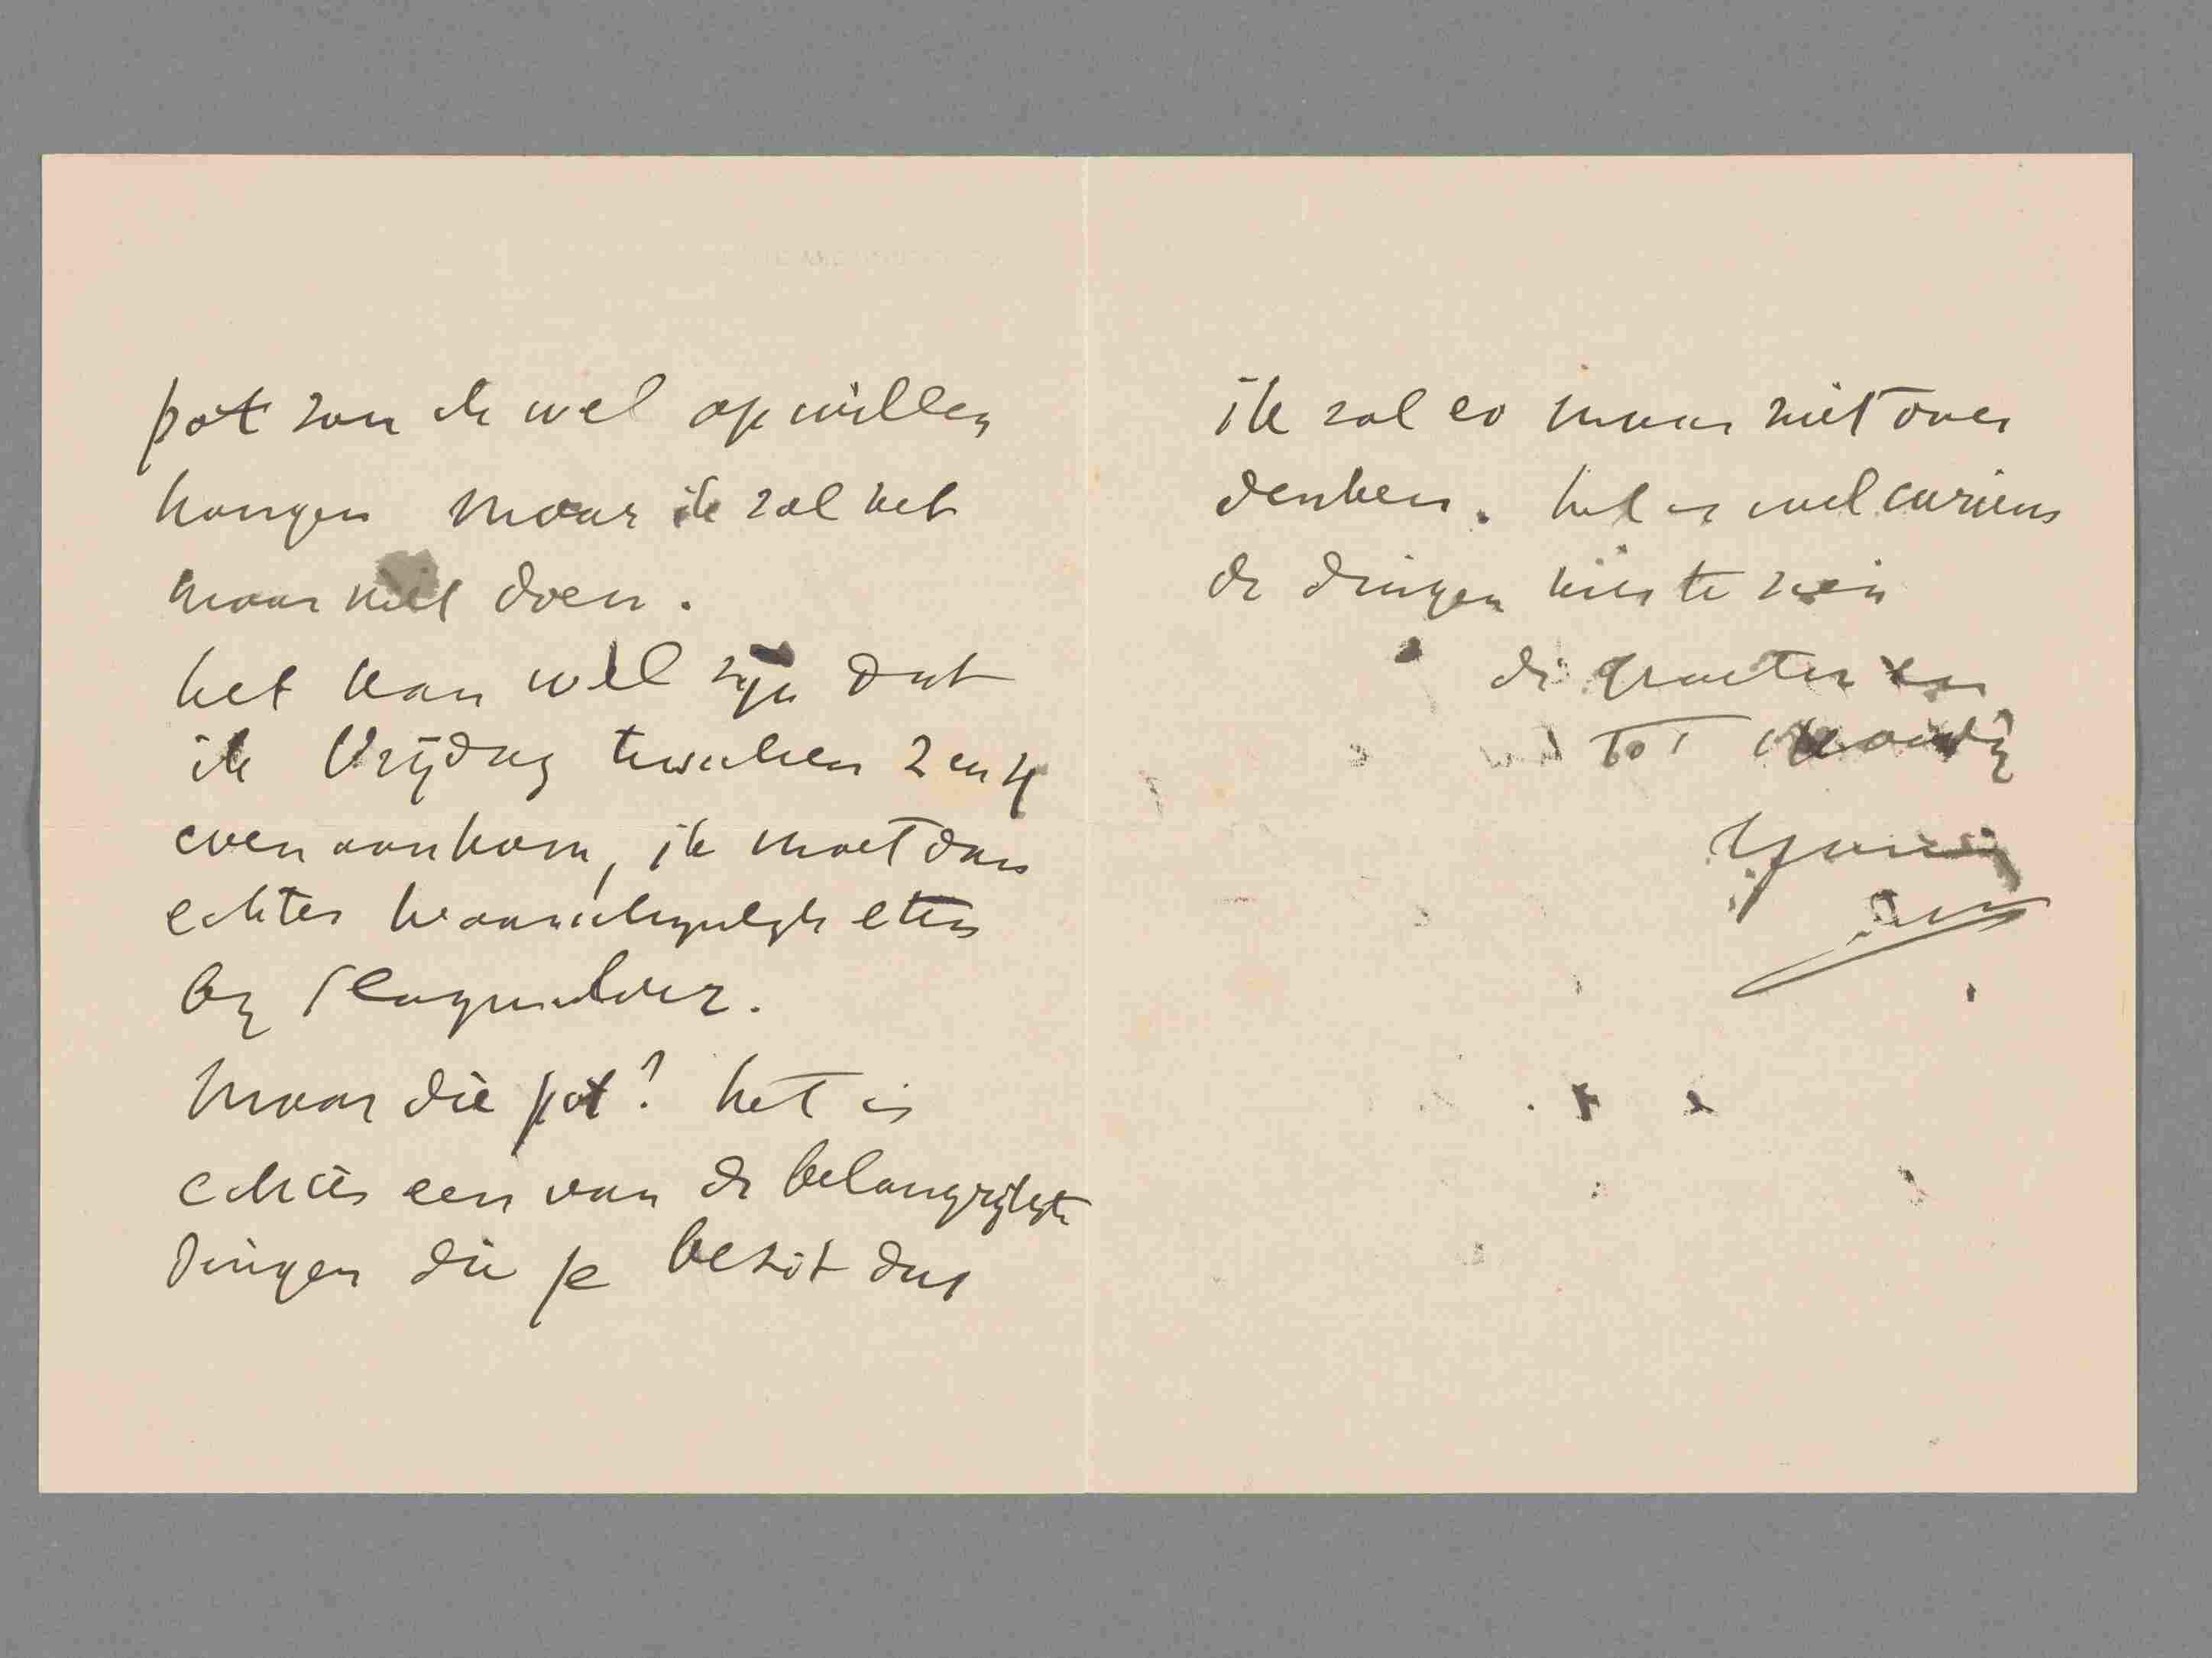 pot zou ik wel op willen
hangen maar ik zal het
maar niet doen.
het kan wel zijn dat
ik Vrijdag tusschen 2 en 4
even aankom, ik moet dan
echter waarschijnlijk eten
bij
maar die pot? het is
echter een van de belangrijkste
dingen die je bezit dus
ik zal er maar niet over
denken. het is wel curieus
de dingen hier te zien
de groeten en
tot